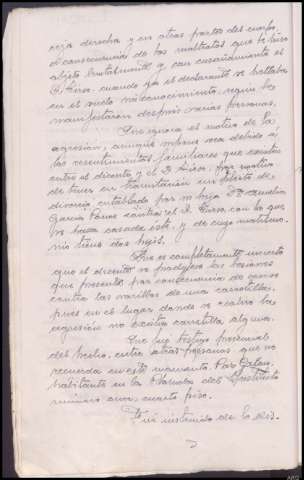 ceja derecha y en otras partes del cuerpo,
a consecuencia de los maltratos que le hizo
objeto brutalmente y con ensañamiento el
cuando ya el declarante se hallaba
en el suelo sin conocimiento, según le
manifestaron después varias personas.
Que ignora el motivo de la
agresión, aunque supone sea debido a
los resentimientos familiares que existen
entre el dicente y el por motivo
de tener en tramitación un pleito de
divorcio entablado por su hija Dª
García contra el D. con la que
se halla casado este, y de cuyo matrimo-
nio tiene dos hijos.
Que es completamente incierto
que el dicente se produjera las lesiones
que presenta por consecuencia de caerse
contra las varillas de una carretilla,
pues en el lugar donde se realizó la
agresión no existía carretilla alguna.
Que fue testigo presencial
del hecho, entre otras personas que no
recuerda en este momento,
habitante en la del Instituto
número once, cuarto piso.
instruido de la